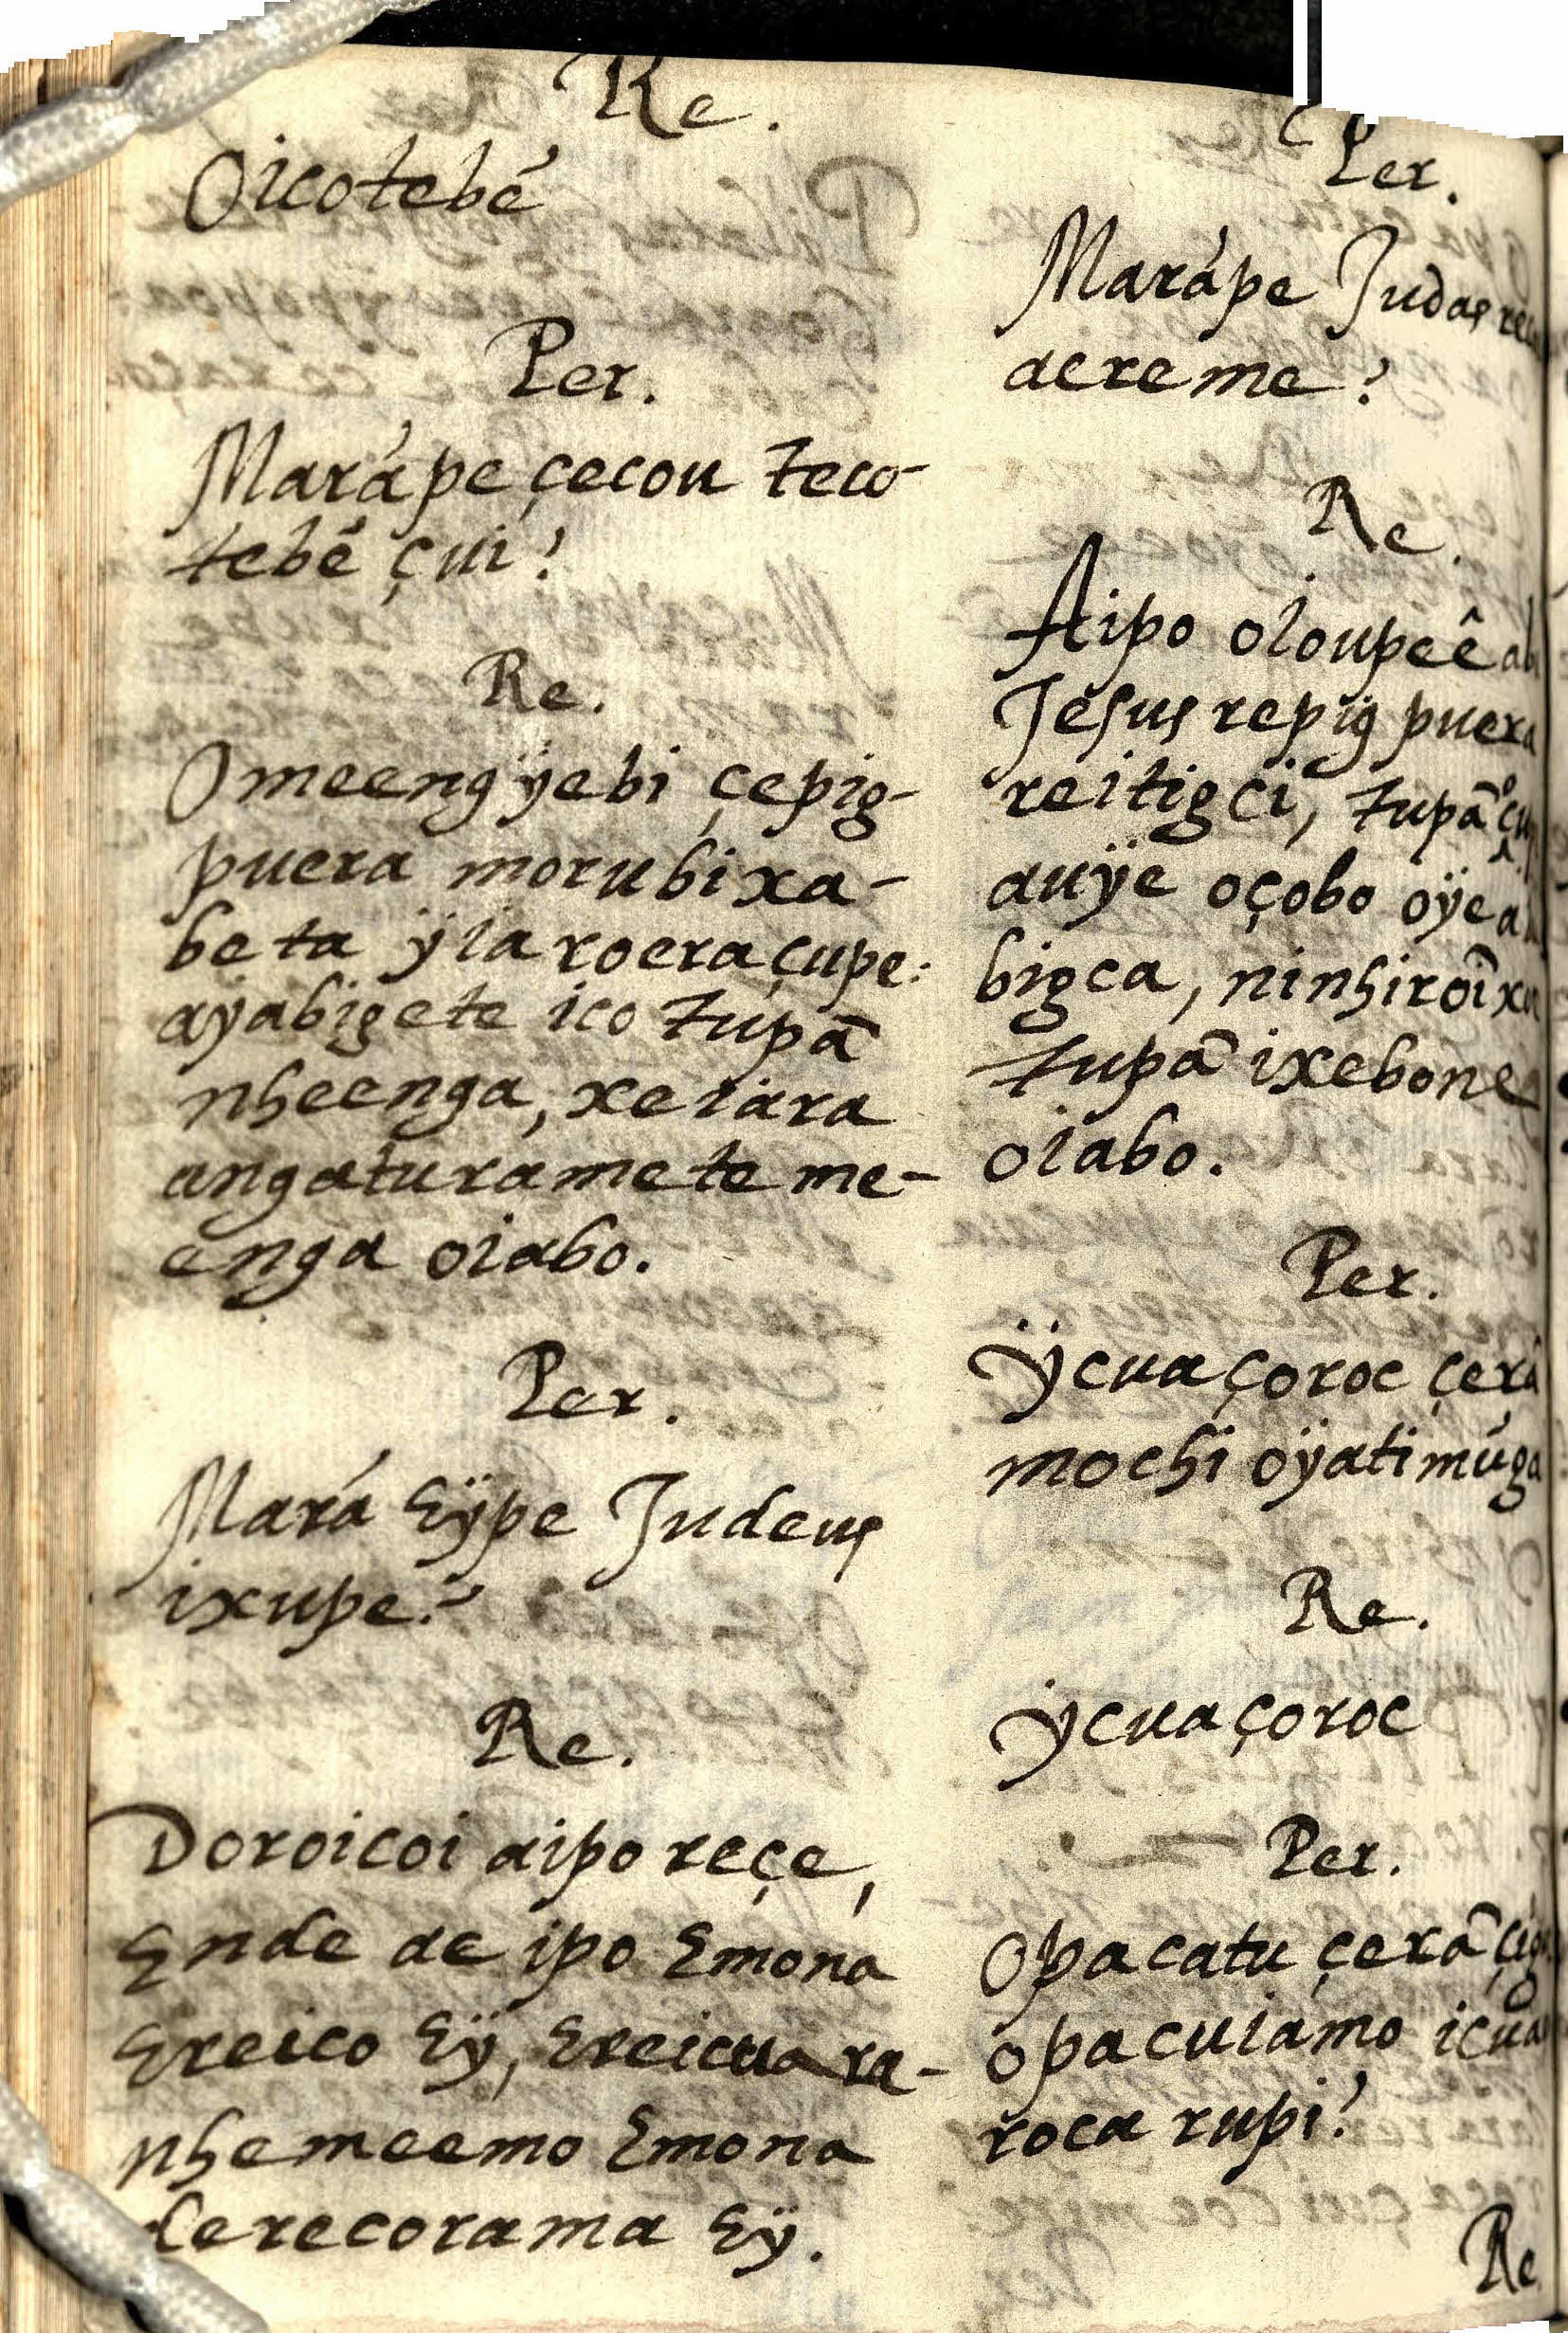 Re.
Oicotebé
Per.
Marápe çecou teco-
tebé çui?
Re.
Omeengÿebi çepig-
puera morubixa-
beta ÿiaroera çupe:
aÿabigete ico tupã
nheenga, xeiara
angaturamete me-
enga oiabo.
Per.
Mará Eÿpe Judeus
ixupe?
Re.
Doroicoi aipo reçe,
Ende ae ipo Emona
Ereico Eÿ, Ereicua ra-
nhemeemo Emona
derecorama Eÿ.
Per.
Marápe Judas
aereme?
Re.
Aipo oioupeê
Jesus repÿg puera
reitigci, tupã
auÿe oçobo
bigca, ninhirõi
tupã ixebone
oiabo.
Per.
Ÿcua çoroc
mochi oÿatimúga
Re.
Ÿcua çoroc
Per.
Opacatu çerã
opacuiamo
roca rupi?
Re